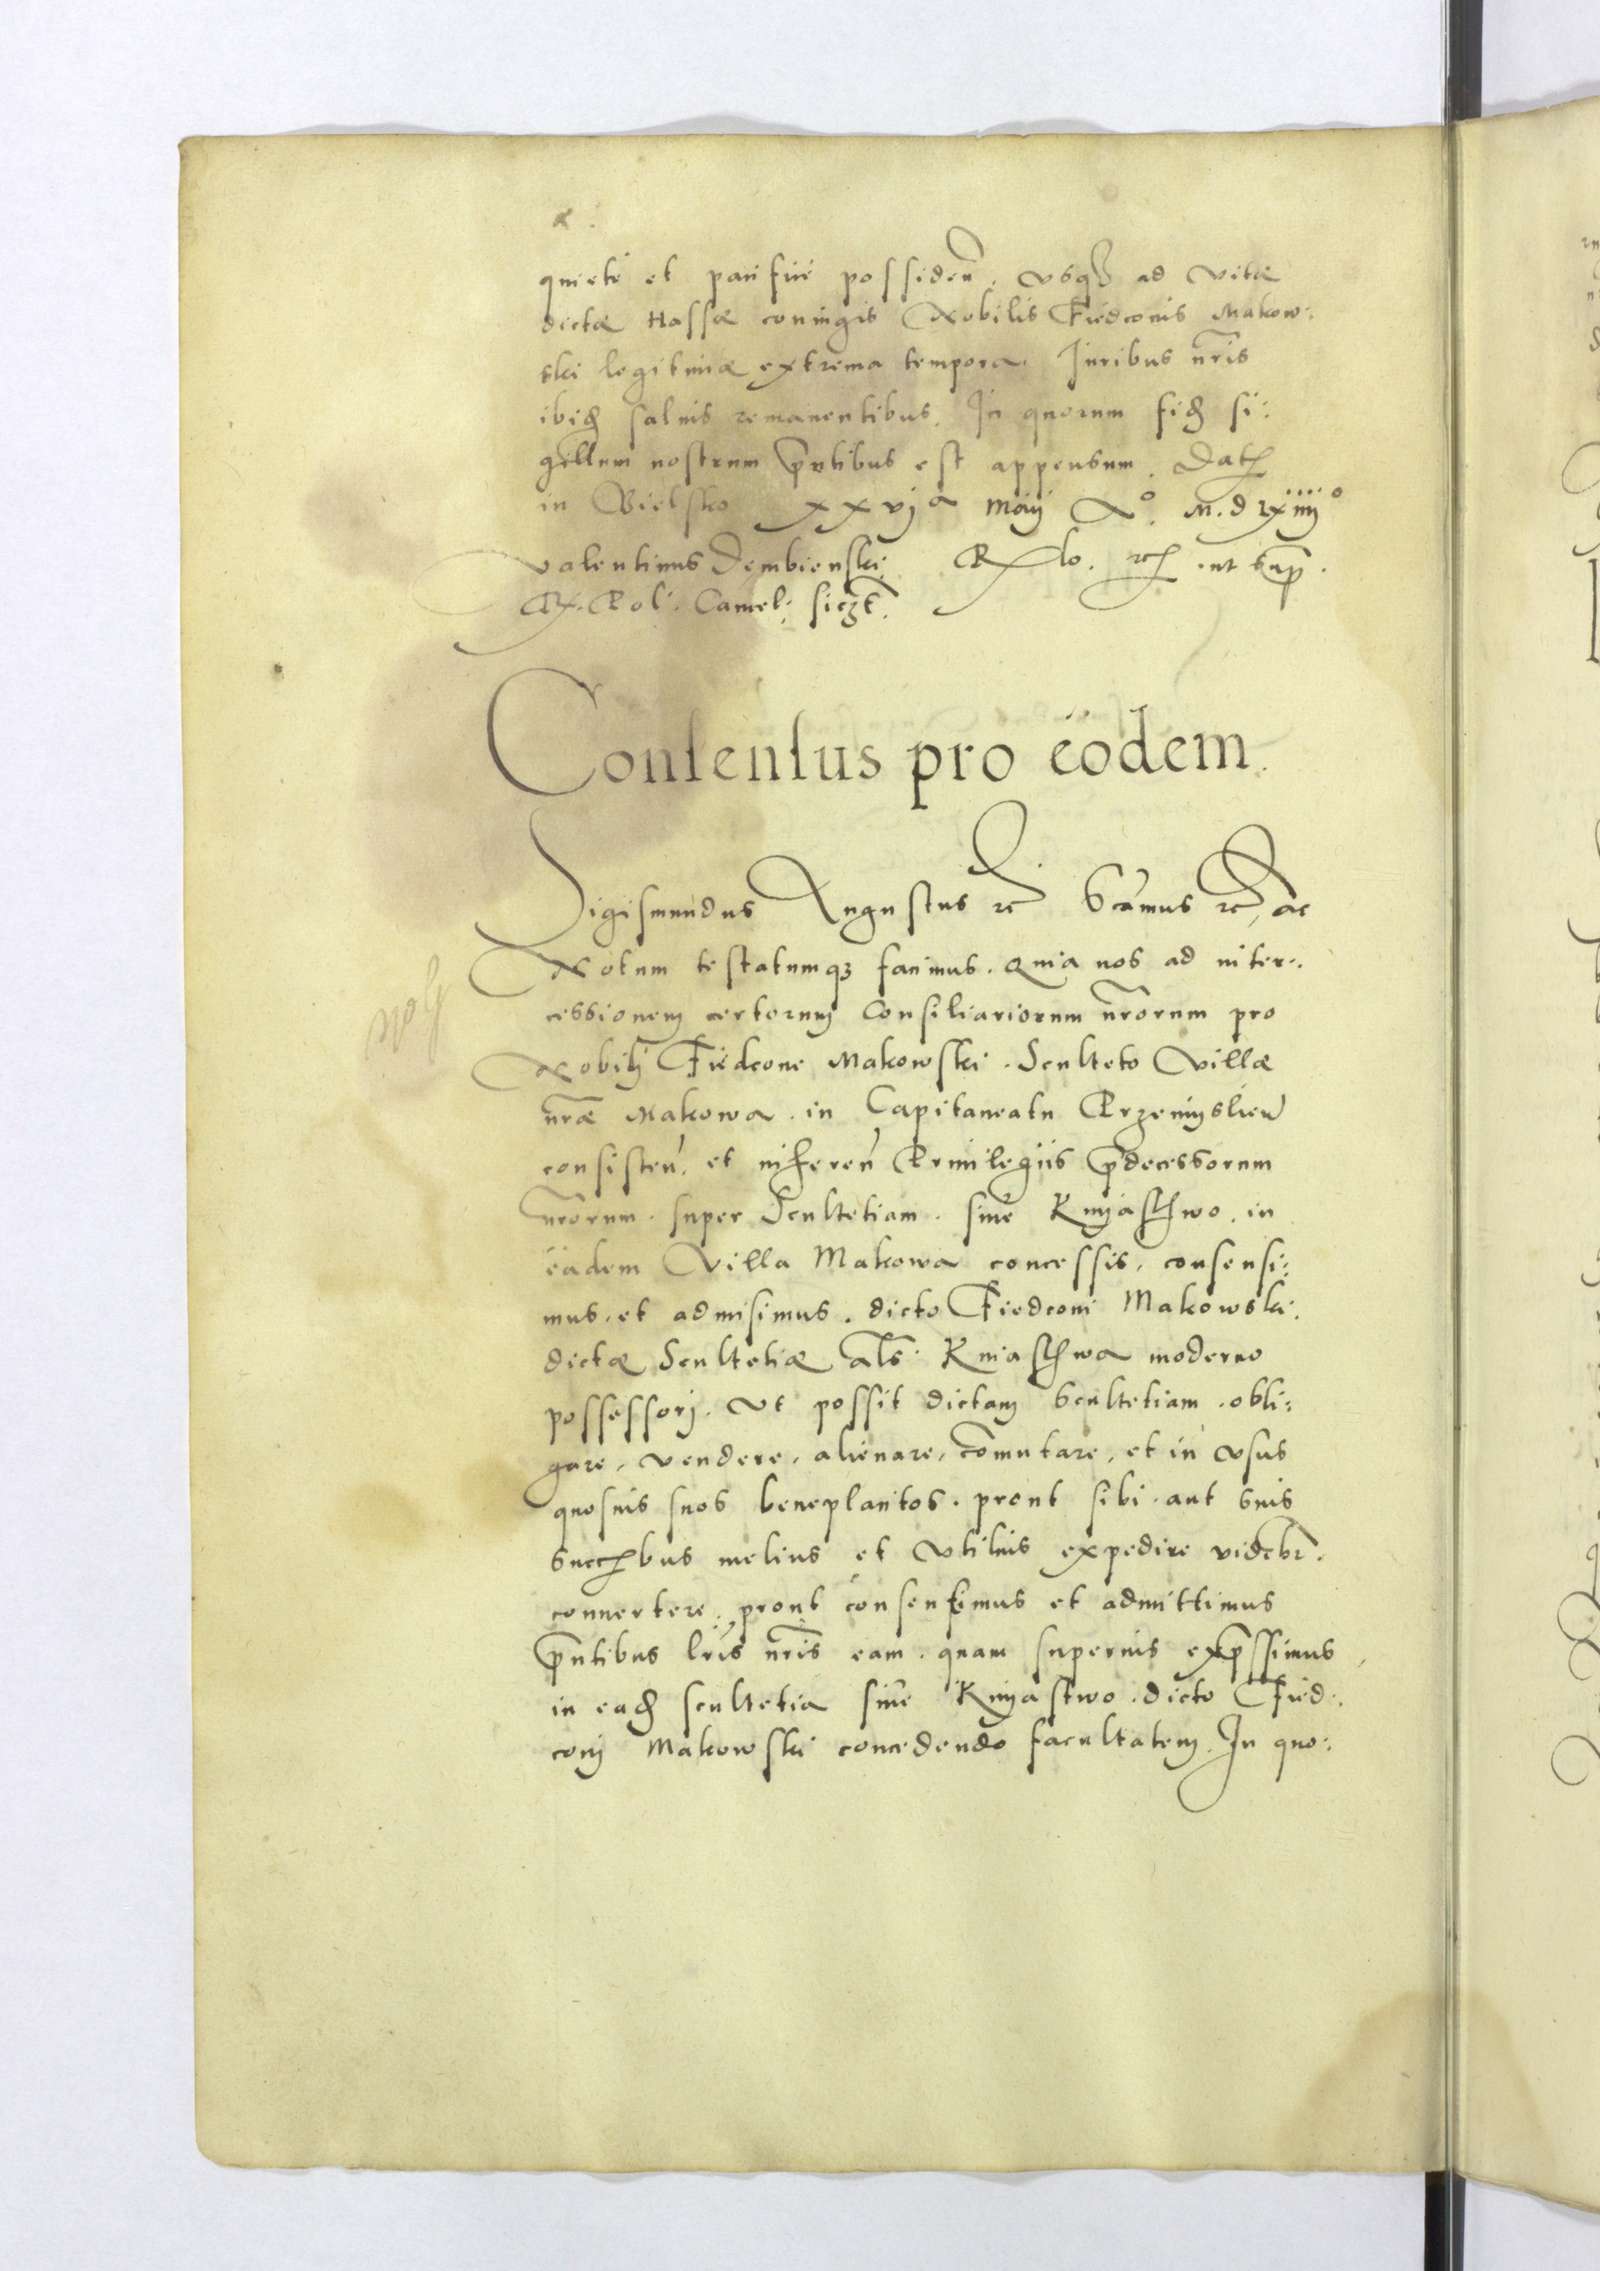 quiete et pacifice possiden̄. vsqȝ ad vitæ
dictæ Hassæ coniugis Nobilis Fiedconis Makow:
ski legitimæ extrema tempora. Iuribus nr̄is
ibid saluis remanentibus. In quorum fid si:
gillum nostrum p̄ntibus est appensum. Dat
in Bielsko xxvja Maij Ao. M.d lxiiijo
Valentinus Dembienski R ut sup
R. Pol. Cancel:
Consensus pro eodem.
Sigismundus Augustus rc Scāmus rc, ac
Notum testatumqȝ facimus. Quia nos ad inter:
cessionem certorum Consiliariorum nr̄orum pro
Nobilj Fiedcone Makowski. Sculteto Villæ
nr̄æ Makowa. in Capitaneatu Przemyslien̄
consisten̄. et inheren̄ Priuilegiis p̄decessorum
nr̄orum. super Scultetiam. siue Knyastwo. in
eadem Villa Makowa concessis. consensi:
mus. et admisimus. dicto Fiedconi Makowski.
dictæ Scultetiæ al̄s Kniastwa moderno
possessorj. Vt possit dictam scultetiam. obli:
gare, vendere, alienare, com̄utare, et in vsus
quosuis suos beneplacitos. prout sibi. aut suis
succbus melius et vtilius expedire videbr̄.
conuertere. prout consentimus et admittimus
p̄ntibus lr̄is nr̄is eam. quam superius exp̄ssimus
in ead scultetia siue Knyastwo. dicto Fied:
conj Makowski concedendo facultatem. In quo: